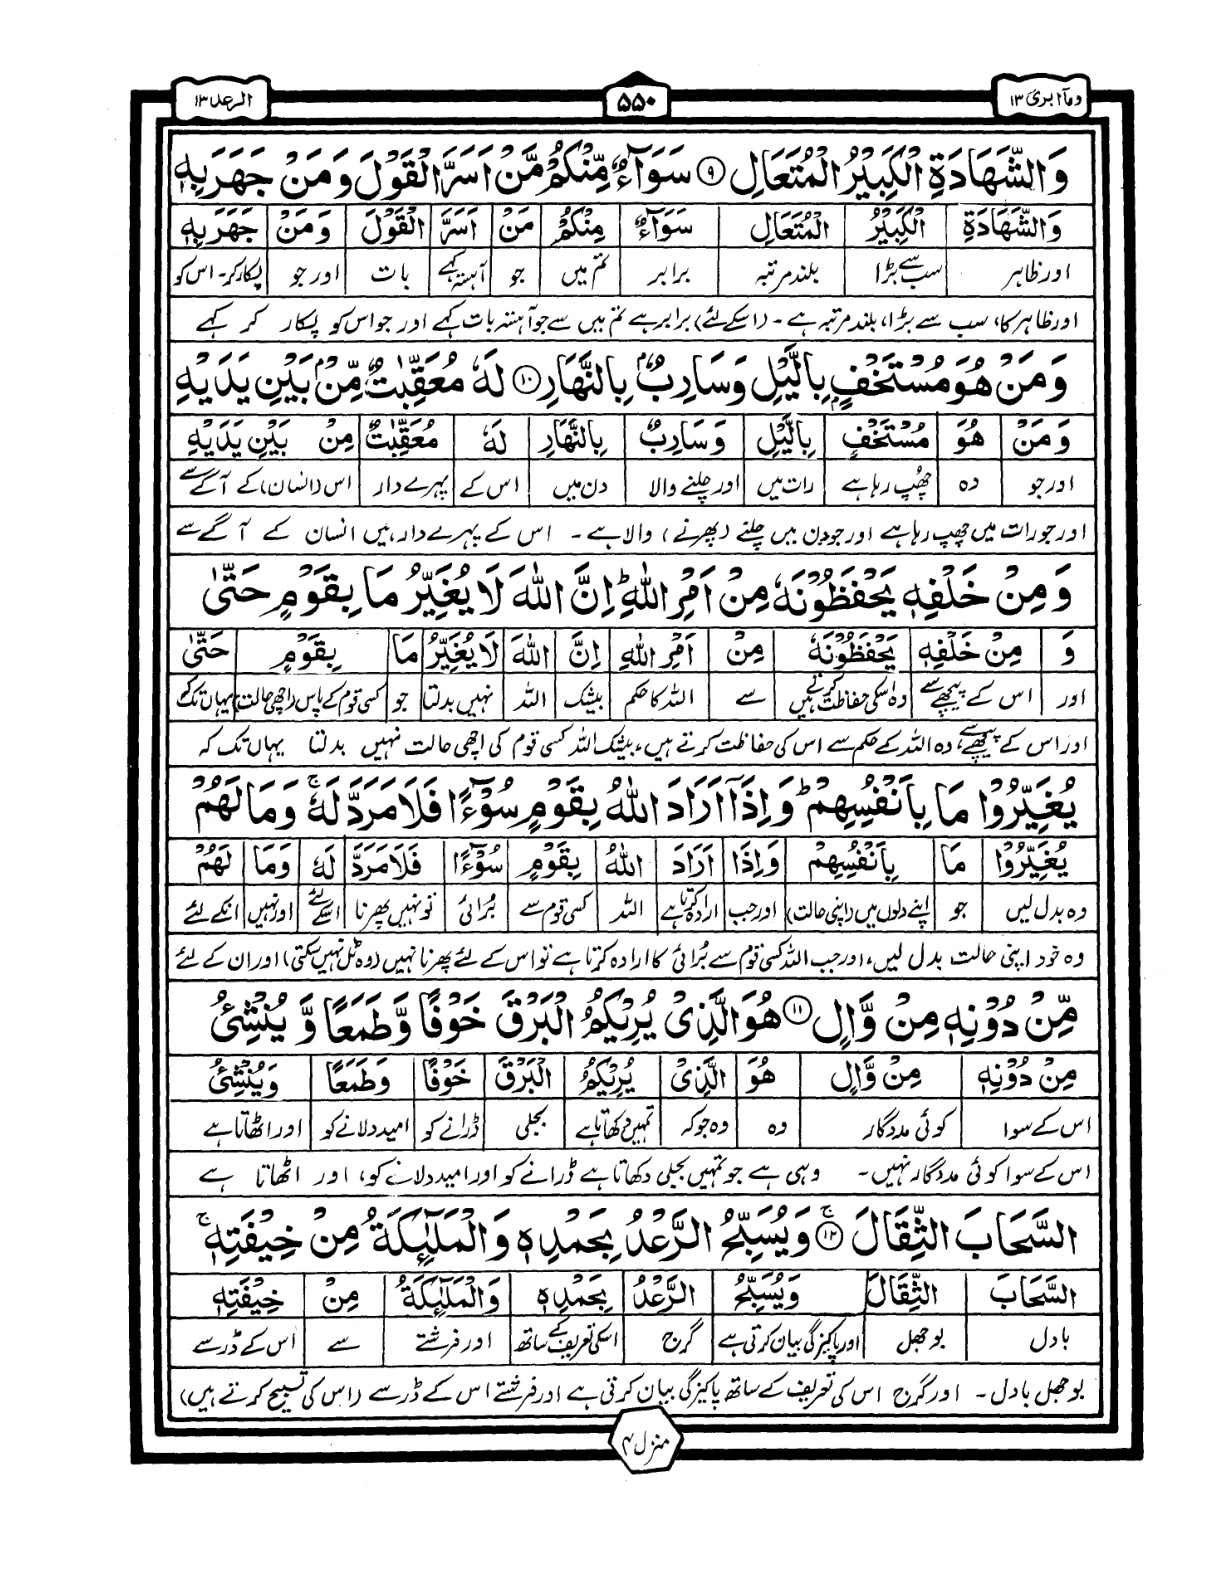 ومآ ابرئ ۱۳
۵۵۰
الرعد ۱۳
وَالشَّهَادَةِ الْكَبِيْرُ الْمُتَعَالِ ۹ سَوَآءٌ مِّنْكُمْ مَّنْ اَسَرَّ الْقَوْلَ وَمَنْ جَهَرَ بِهٖ
وَالشَّهَادَةِ الْكَبِيْرُ الْمُتَعَالِ سَوَآءٌ مِنْكُمْ مَنْ اَسَرَّ الْقَوْلَ وَمَنْ جَهَرَ بِهٖ
اور ظاہر سب سے بڑا بلند مرتبہ برابر تم میں جو آہستہ کہے بات اور جو پکار کر۔ اس کو
اور ظاہر کا، سب سے بڑا، بلند مرتبہ ہے۔ (اسکے لئے) برابر ہے تم میں سے جو آہستہ بات کہے اور جو اس کو پکار کر کہے
وَمَنْ هُوَ مُسْتَخْفٍۭ بِالَّيْلِ وَسَارِبٌۢ بِالنَّهَارِ ۱۰ لَهٗ مُعَقِّبٰتٌ مِّنْۢ بَيْنِ يَدَيْهِ
وَمَنْ هُوَ مُسْتَخْفٍ بِالَّيْلِ وَسَارِبٌ بِالنَّهَارِ لَهٗ مُعَقِّبٰتٌ مِنْ بَيْنِ يَدَيْهِ
اور جو وہ چھپ رہا ہے رات میں اور چلنے والا دن میں اس کے پہرے دار اس (انسان) کے آگے سے
اور جو رات میں چھپ رہا ہے اور جو دن میں چلنے (پھرنے) والا ہے۔ اس کے پہرے دار ہیں انسان کے آگے سے
وَمِنْ خَلْفِهٖ يَحْفَظُوْنَهٗ مِنْ اَمْرِ اللّٰهِ ؕ اِنَّ اللّٰهَ لَا يُغَيِّرُ مَا بِقَوْمٍ حَتّٰى
وَ مِنْ خَلْفِهٖ يَحْفَظُوْنَهٗ مِنْ اَمْرِ اللّٰهِ اِنَّ اللّٰهَ لَا يُغَيِّرُ مَا بِقَوْمٍ حَتّٰى
اور اس کے پیچھے سے وہ اسکی حفاظت کرتے ہیں سے اللہ کا حکم بیشک اللہ نہیں بدلتا جو کسی قوم کے پاس (اچھی حالت) یہاں تک کہ
اور اس کے پیچھے سے، وہ اللہ کے حکم سے اس کی حفاظت کرتے ہیں، بیشک اللہ کسی قوم کی اچھی حالت نہیں بدلتا یہاں تک کہ
يُغَيِّرُوْا مَا بِاَنْفُسِهِمْ ؕ وَاِذَآ اَرَادَ اللّٰهُ بِقَوْمٍ سُوْٓءًا فَلَا مَرَدَّ لَهٗ ۚ وَمَا لَهُمْ
يُغَيِّرُوْا مَا بِاَنْفُسِهِمْ وَاِذَا اَرَادَ اللّٰهُ بِقَوْمٍ سُوْٓءًا فَلَا مَرَدَّ لَهٗ وَمَا لَهُمْ
وہ بدل لیں جو اپنے دلوں میں (اپنی حالت) اور جب ارادہ کرتا ہے اللہ کسی قوم سے بُرائی تو نہیں پھرنا اسکے لئے اور نہیں انکے لئے
وہ خود اپنی حالت بدل لیں، اور جب اللہ کسی قوم سے بُرائی کا ارادہ کرتا ہے تو اس کے لئے پھرنا نہیں (وہ ٹل نہیں سکتی) اور ان کے لئے
مِّنْ دُوْنِهٖ مِنْ وَّالٍ ۱۱ هُوَ الَّذِىْ يُرِيْكُمُ الْبَرْقَ خَوْفًا وَّطَمَعًا وَّيُنْشِئُ
مِنْ دُوْنِهٖ مِنْ وَّالٍ هُوَ الَّذِىْ يُرِيْكُمُ الْبَرْقَ خَوْفًا وَطَمَعًا وَيُنْشِئُ
اس کے سوا کوئی مددگار وہ وہ جو کہ تمہیں دکھاتا ہے بجلی ڈرانے کو امید دلانے کو اور اٹھاتا ہے
اس کے سوا کوئی مددگار نہیں۔ وہی ہے جو تمہیں بجلی دکھاتا ہے ڈرانے کو اور امید دلانے کو، اور اٹھاتا ہے
السَّحَابَ الثِّقَالَ ۱۲ ۚ وَيُسَبِّحُ الرَّعْدُ بِحَمْدِهٖ وَالْمَلٰٓئِكَةُ مِنْ خِيْفَتِهٖ ۚ
السَّحَابَ الثِّقَالَ وَيُسَبِّحُ الرَّعْدُ بِحَمْدِهٖ وَالْمَلٰٓئِكَةُ مِنْ خِيْفَتِهٖ
بادل بوجھل اور پاکیزگی بیان کرتی ہے گرج اسکی تعریف کے ساتھ اور فرشتے سے اس کے ڈر سے
بوجھل بادل۔ اور گرج اس کی تعریف کے ساتھ پاکیزگی بیان کرتی ہے اور فرشتے اس کے ڈر سے (اس کی تسبیح کرتے ہیں)
منزل ۳